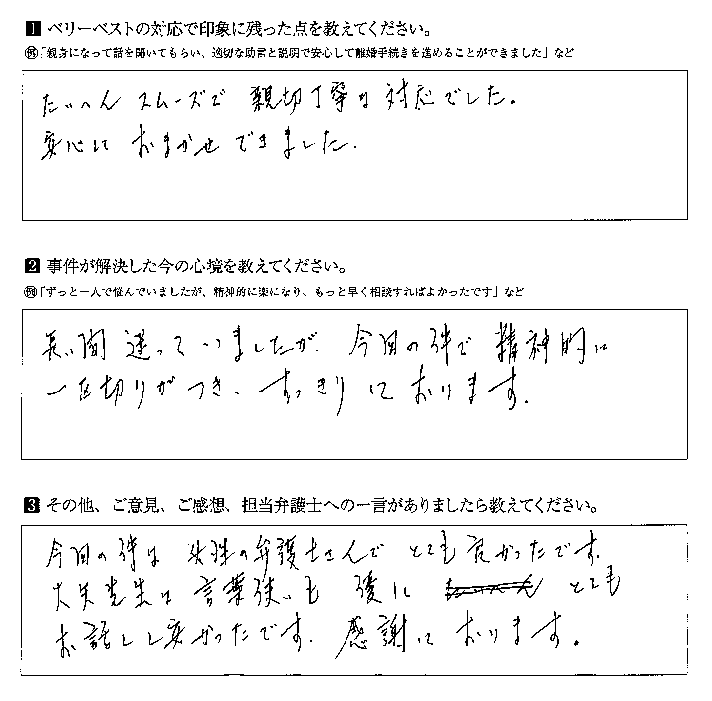 1 ベリーベストの対応で印象に残った点を教えてください。
例「親身になって話を聞いてもらい、適切な助言と説明で安心して離婚手続きを進めることができました」など
たいへん スムーズで 親切丁寧な 対応でした。
安心して おまかせ できました.
2 事件が解決した今の心境を教えてください。
例「ずっと一人で悩んでいましたが、精神的に楽になり、もっと早く相談すればよかったです」など
長い間 迷っていましたが、今回の件で 精神的に
一区切りがつき、すっきりしております.
3 その他、ご意見、ご感想、担当弁護士への一言がありましたら教えてください。
今回の件は 女性の弁護士さんで とても良かったです.
先生は 言葉使いも 優しく とても
お話しし安かったです. 感謝しております。